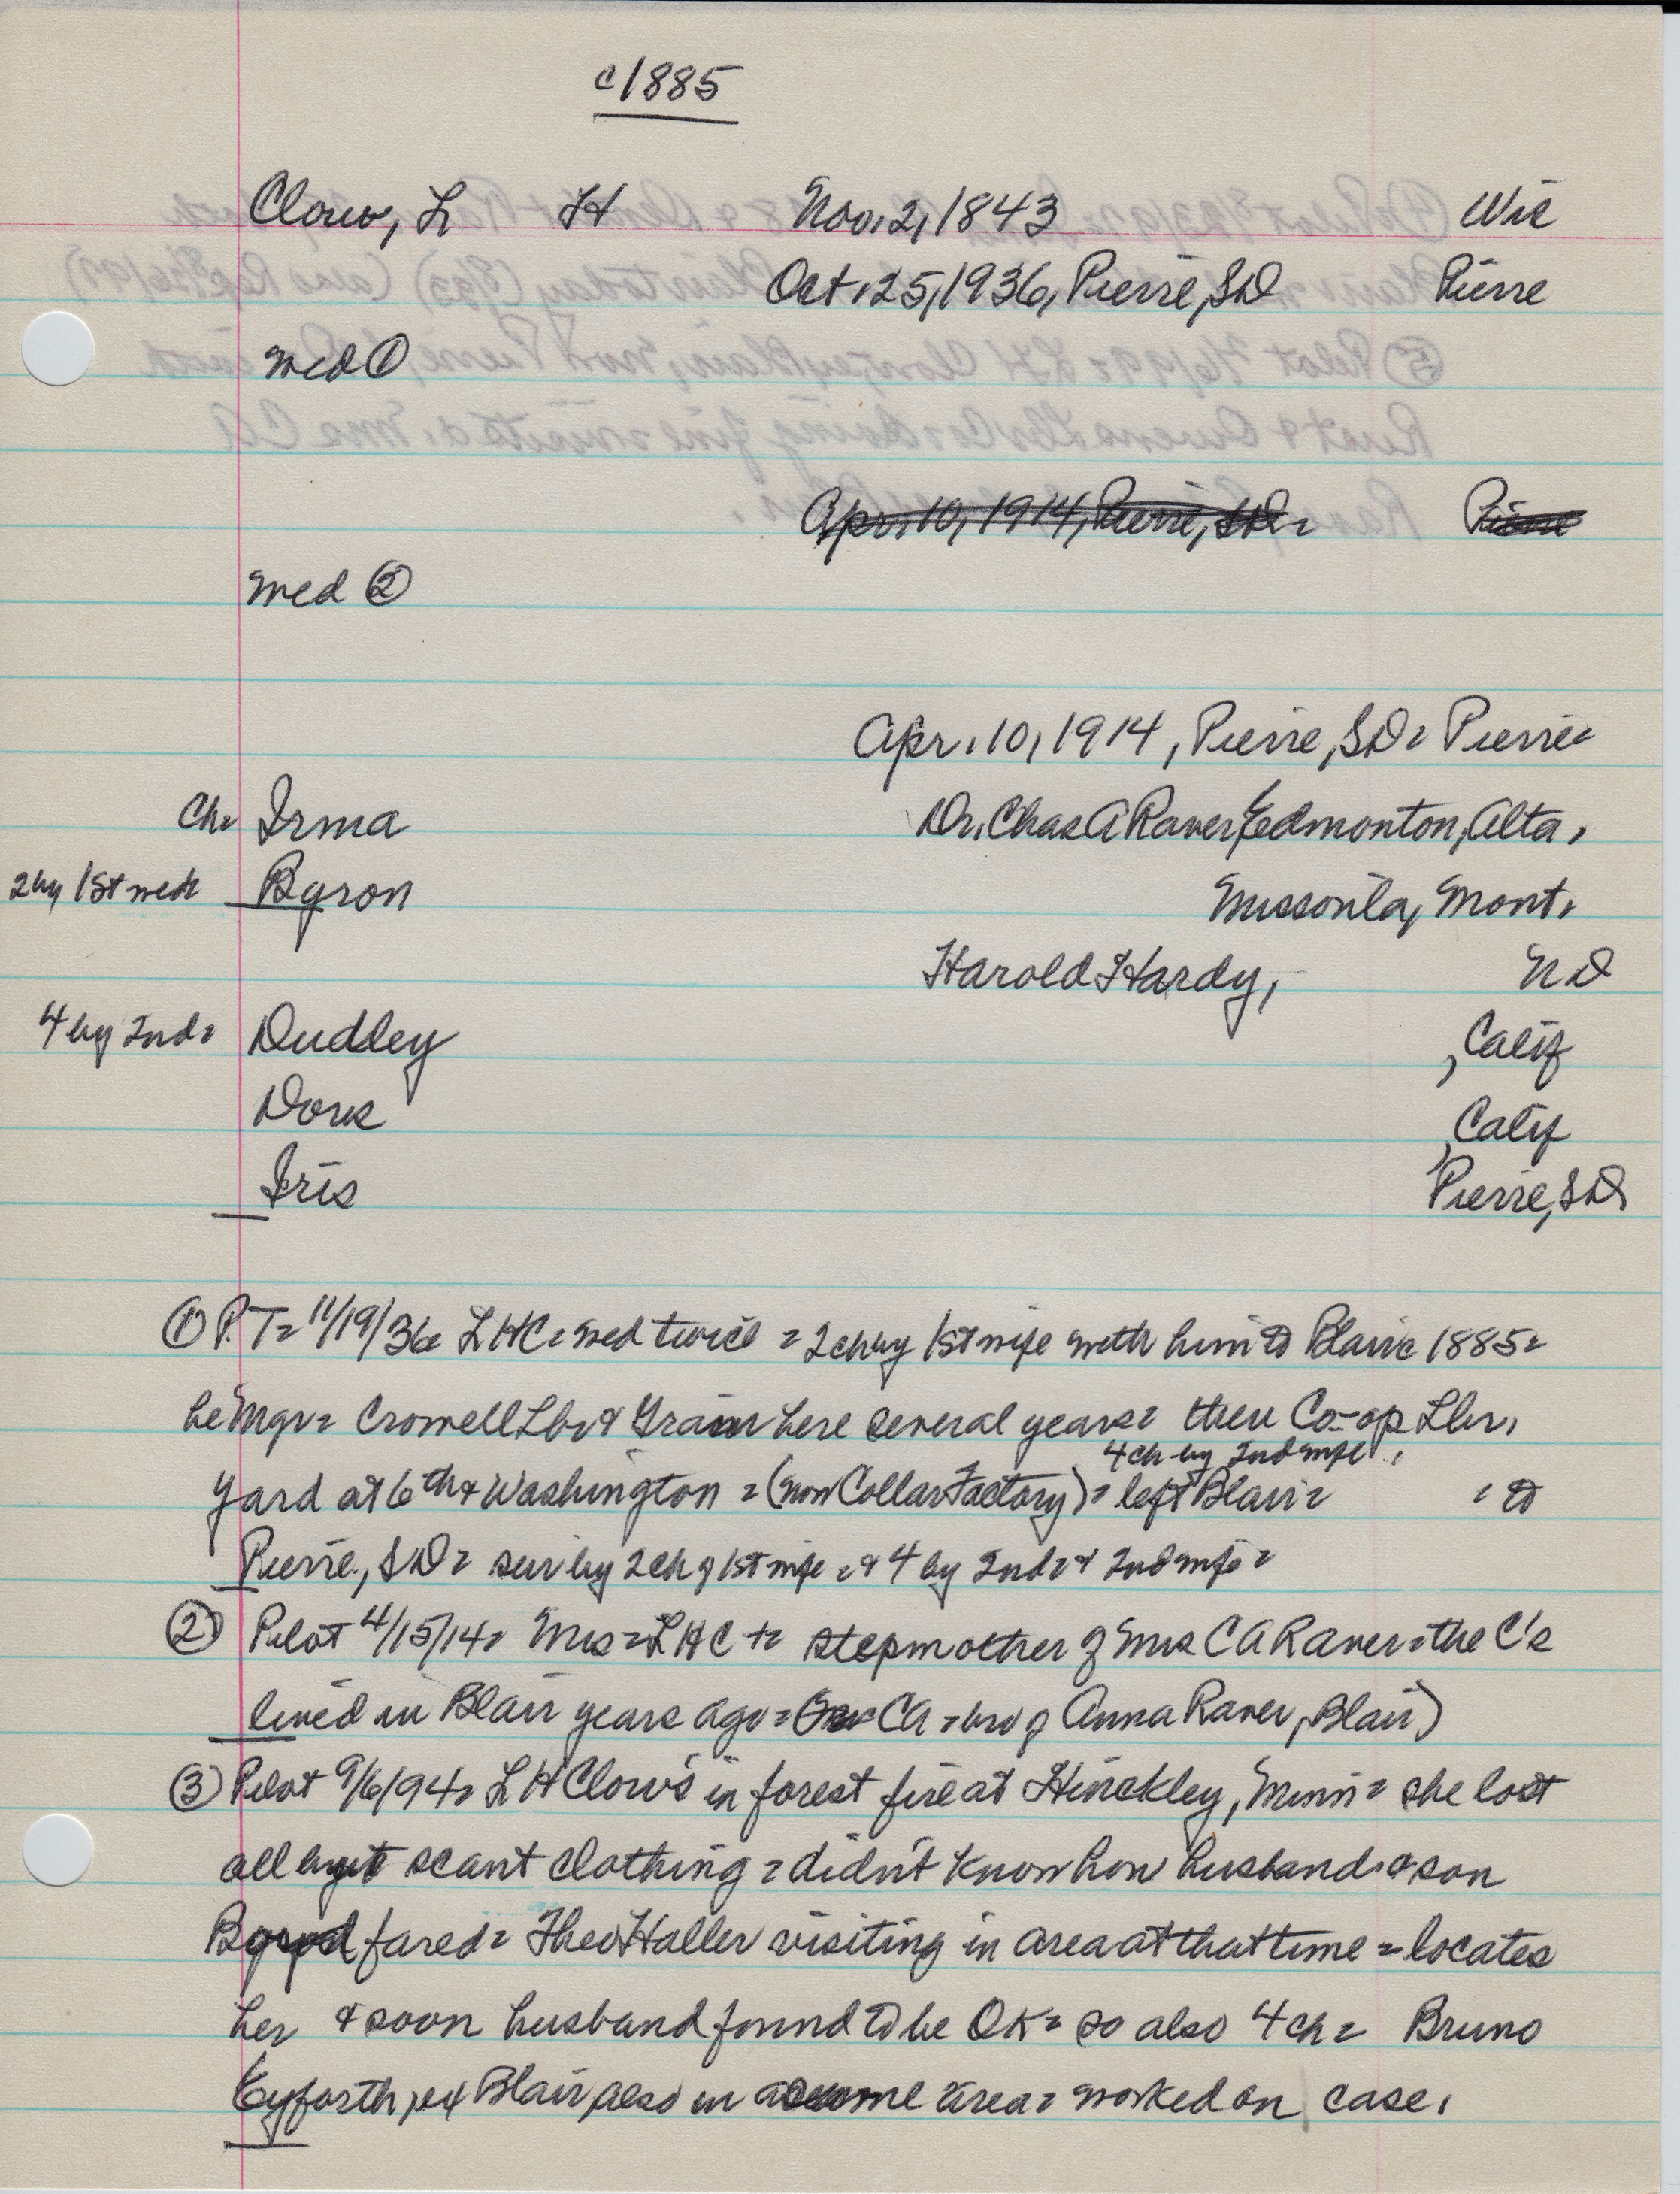 c1885
Clow, L H Nov. 2, 1843 Wis
Oct. 25, 1936, Pierre, SD Pierre
med ①
Apr. 10, 1914, Pierre, SD= Pierre
med ②
Apr. 10, 1914, Pierre, SD= Pierre=
Ch= Irma Dr. Chas A Raver, Edmonton, Alta.
2 by 1st med= Byron Missoula, Mont.
Harold Hardy, ND
4 by 2nd= Dudley , Calif
Doris , Calif
Iris Pierre, SD
① P.T= 11/19/36= L HC= med twice = 2 ch by 1st wife with him to Blair= 1885=
he Mgr= Crowell Lbr & Grain here several years= then Co-op Lbr.
4 ch by 2nd wife.
Yard at 6th & Washington = (now Collar Factory)= left Blair= = to
Pierre, SD= sur by 2 ch of 1st wife = & 4 by 2nd= & 2nd wife=
② Pilot 4/15/14= Mrs= L HC += stepmother of Mrs CA Raver= the C's
lived in Blair years ago= CA= bro of Anna Raver, Blair)
③ Pilot 9/6/94= L H Clow's in forest fire at Hinckley, Minn= she lost
all but scant clothing= didn't know how husband & son
fared= Theo Haller visiting in area at that time = locates
her & soon husband found to be OK= so also 4 ch= Bruno
Eyforth, ex Blair, also in area= worked on case.